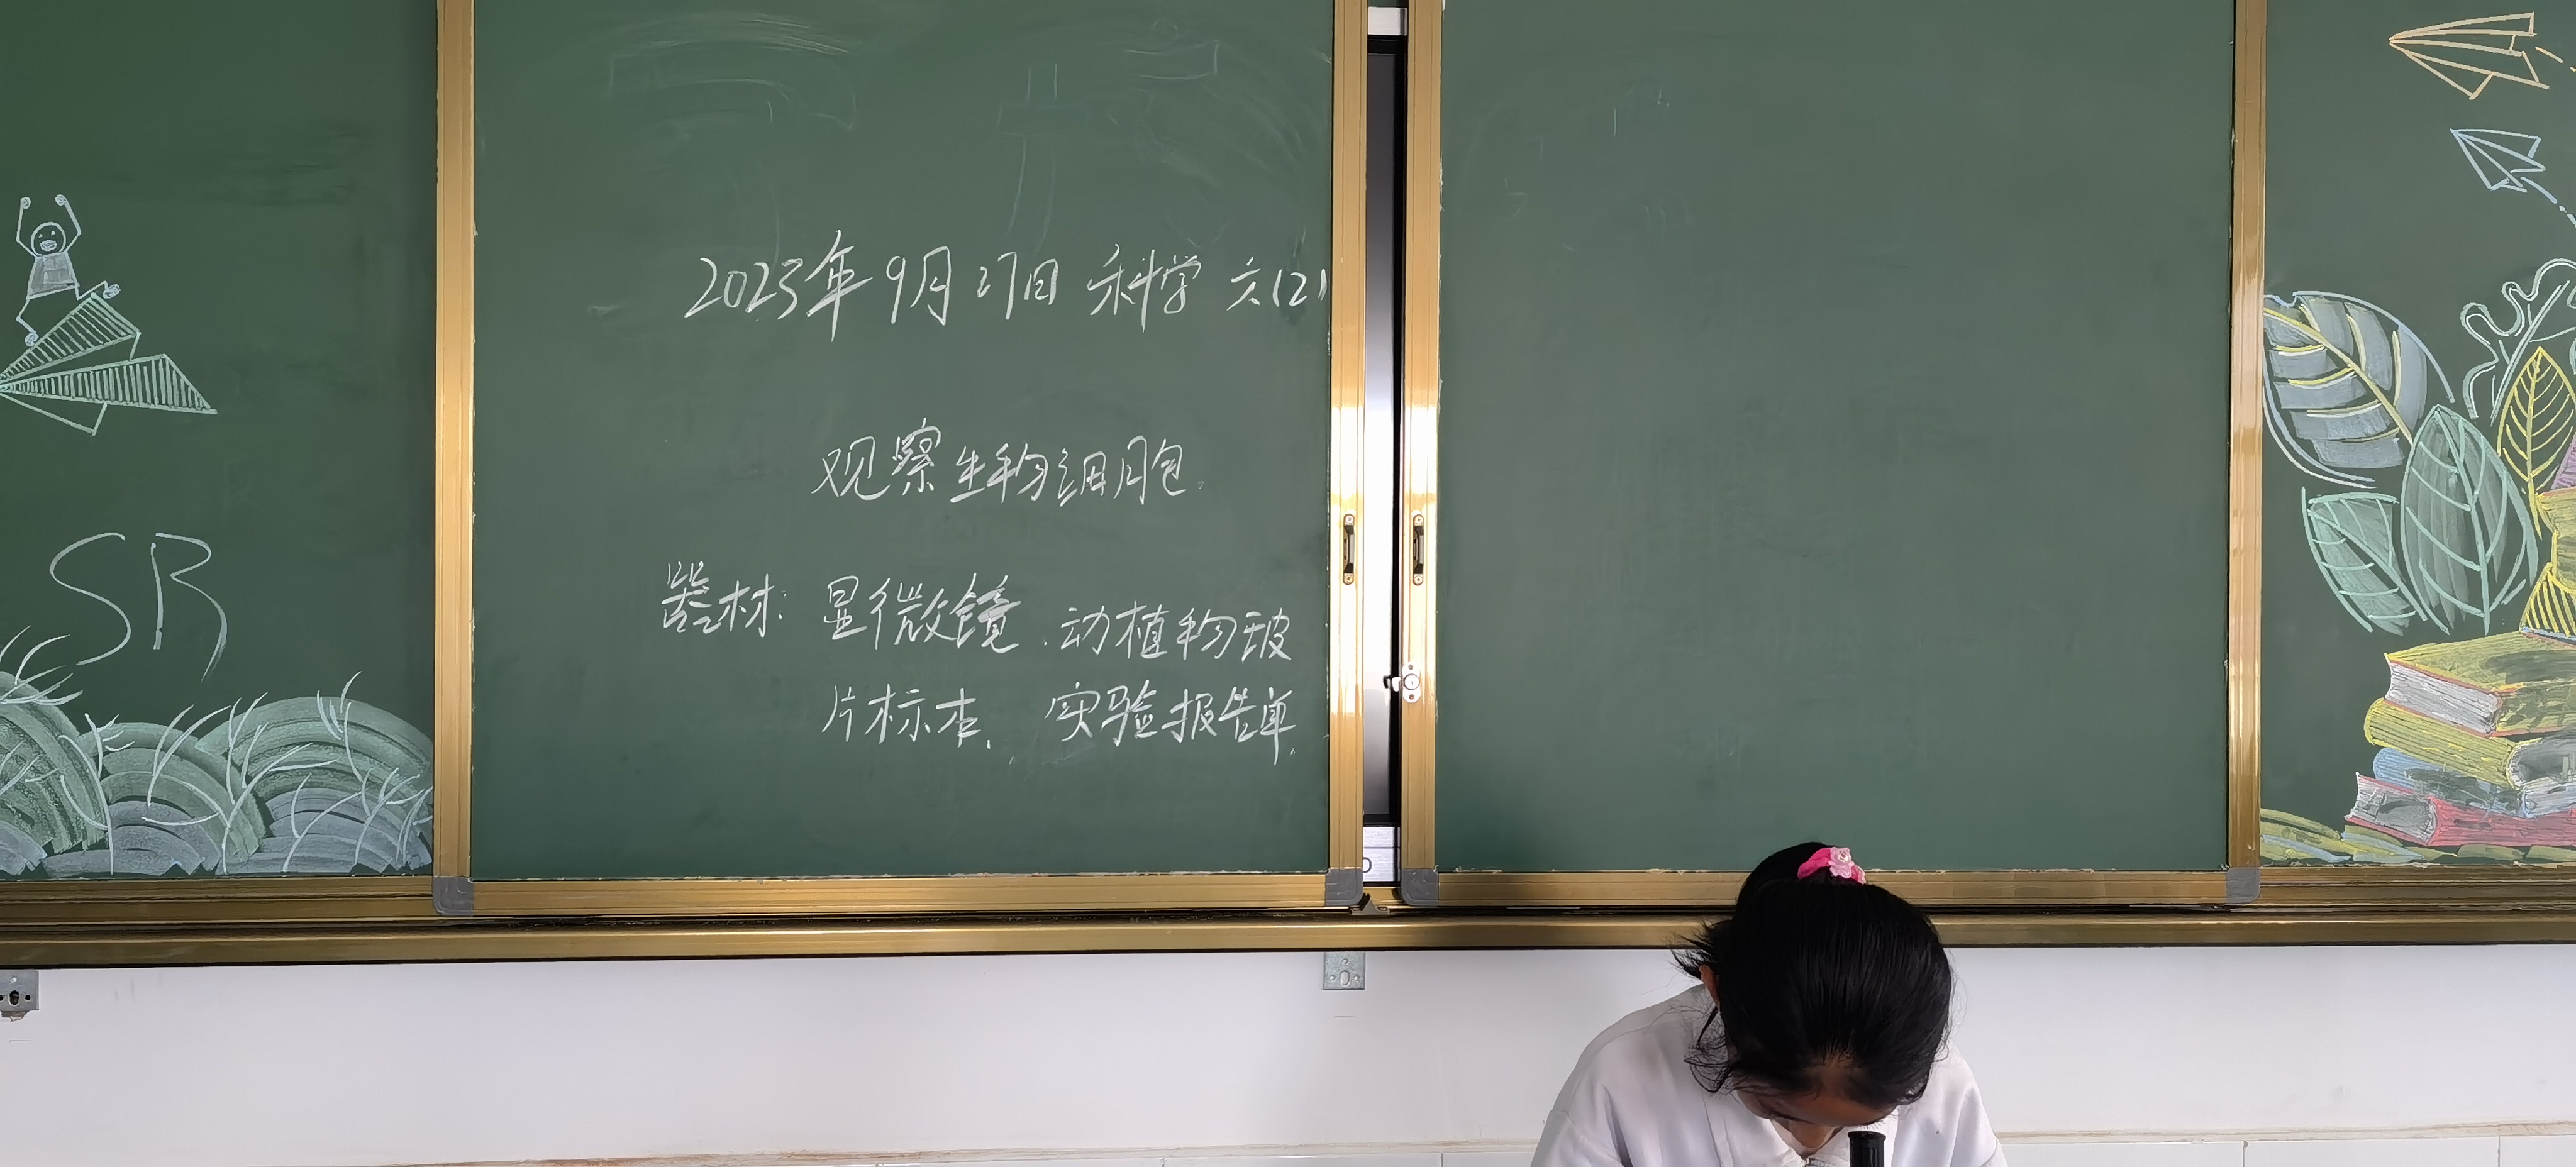 2023年9月27日 科学 六(2)
观察生物细胞
器材: 显微镜、动植物玻
片标本、实验报告单.
SR